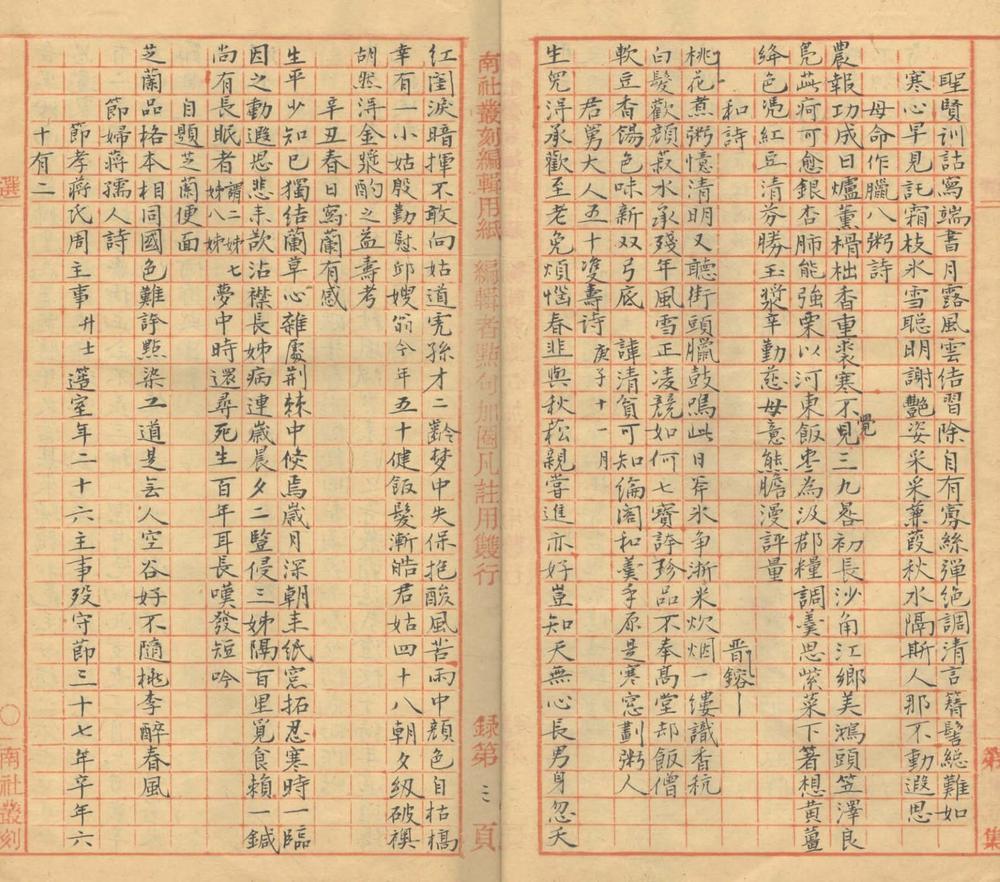 聖賢訓詁寫端書月露風雲結習除自有寡絲彈絶調清言簪髻總難如
寒心早見託霜枝氷雪聡明謝艷姿采采蒹葭秋水隔斯人那不動遐思
母命作臘八粥詩
農報功成日爐薰榾柮香重裘寒不覺三九晷初長沙角江鄉美鴻頭笠澤良
凫茈疴可愈銀杏肺能強栗以河東飯枣為汲郡糧調羹思紫菜下箸想黄薑
絳色憑紅豆清芬勝玉漿辛勤慈母意熊膽漫評量
和詩
晋鎔
桃花煮粥憶清明又聽街頭臘鼓鳴此日斧氷争淅米炊烟一縷識香秔
白髮歡顔菽水承殘年風雪正凌競如何七寶誇珍品不奉高堂却飯僧
軟豆香餳色味新双弓底諱清貧可知綸阁和羹手原是寒窓劃粥人
君舅大人五十雙壽詩 庚子十一月
生兒淂承歡至老免煩惱春韭與秋菘親嘗進亦好豈知天無心長男身忽夭
南社叢刻編輯用紙 編輯者點句加圈凡註用雙行 録第三頁
紅閨淚暗揮不敢向姑道兂孫才二齡梦中失保抱酸風苦雨中顔色自枯槁
幸有一小姑殷勤慰邱嫂翁今年五十健飯髮漸皓君姑四十八朝夕级破襖
胡然淂金漿酌之益壽考
辛丑春日寫蘭有感
生平少知己獨结蘭草心雜處荆棘中倏焉歲月深朝来纸窓拓忍寒時一臨
因之動遐思悲来欷沾襟長姊病連歲晨夕二豎侵三姊隔百里覓食賴一鍼
尚有長眠者 謂二姊七姊八姊 夢中時還尋死生百年耳長嘆發短吟
自題芝蘭便面
芝蘭品格本相同國色難誇點染工道是無人空谷好不隨桃李醉春風
節婦蒋孺人詩
節孝蒋氏周主事廾七簉室年二十六主事殁守節三十七年辛年六
十有二
選
南社叢刻
第
集